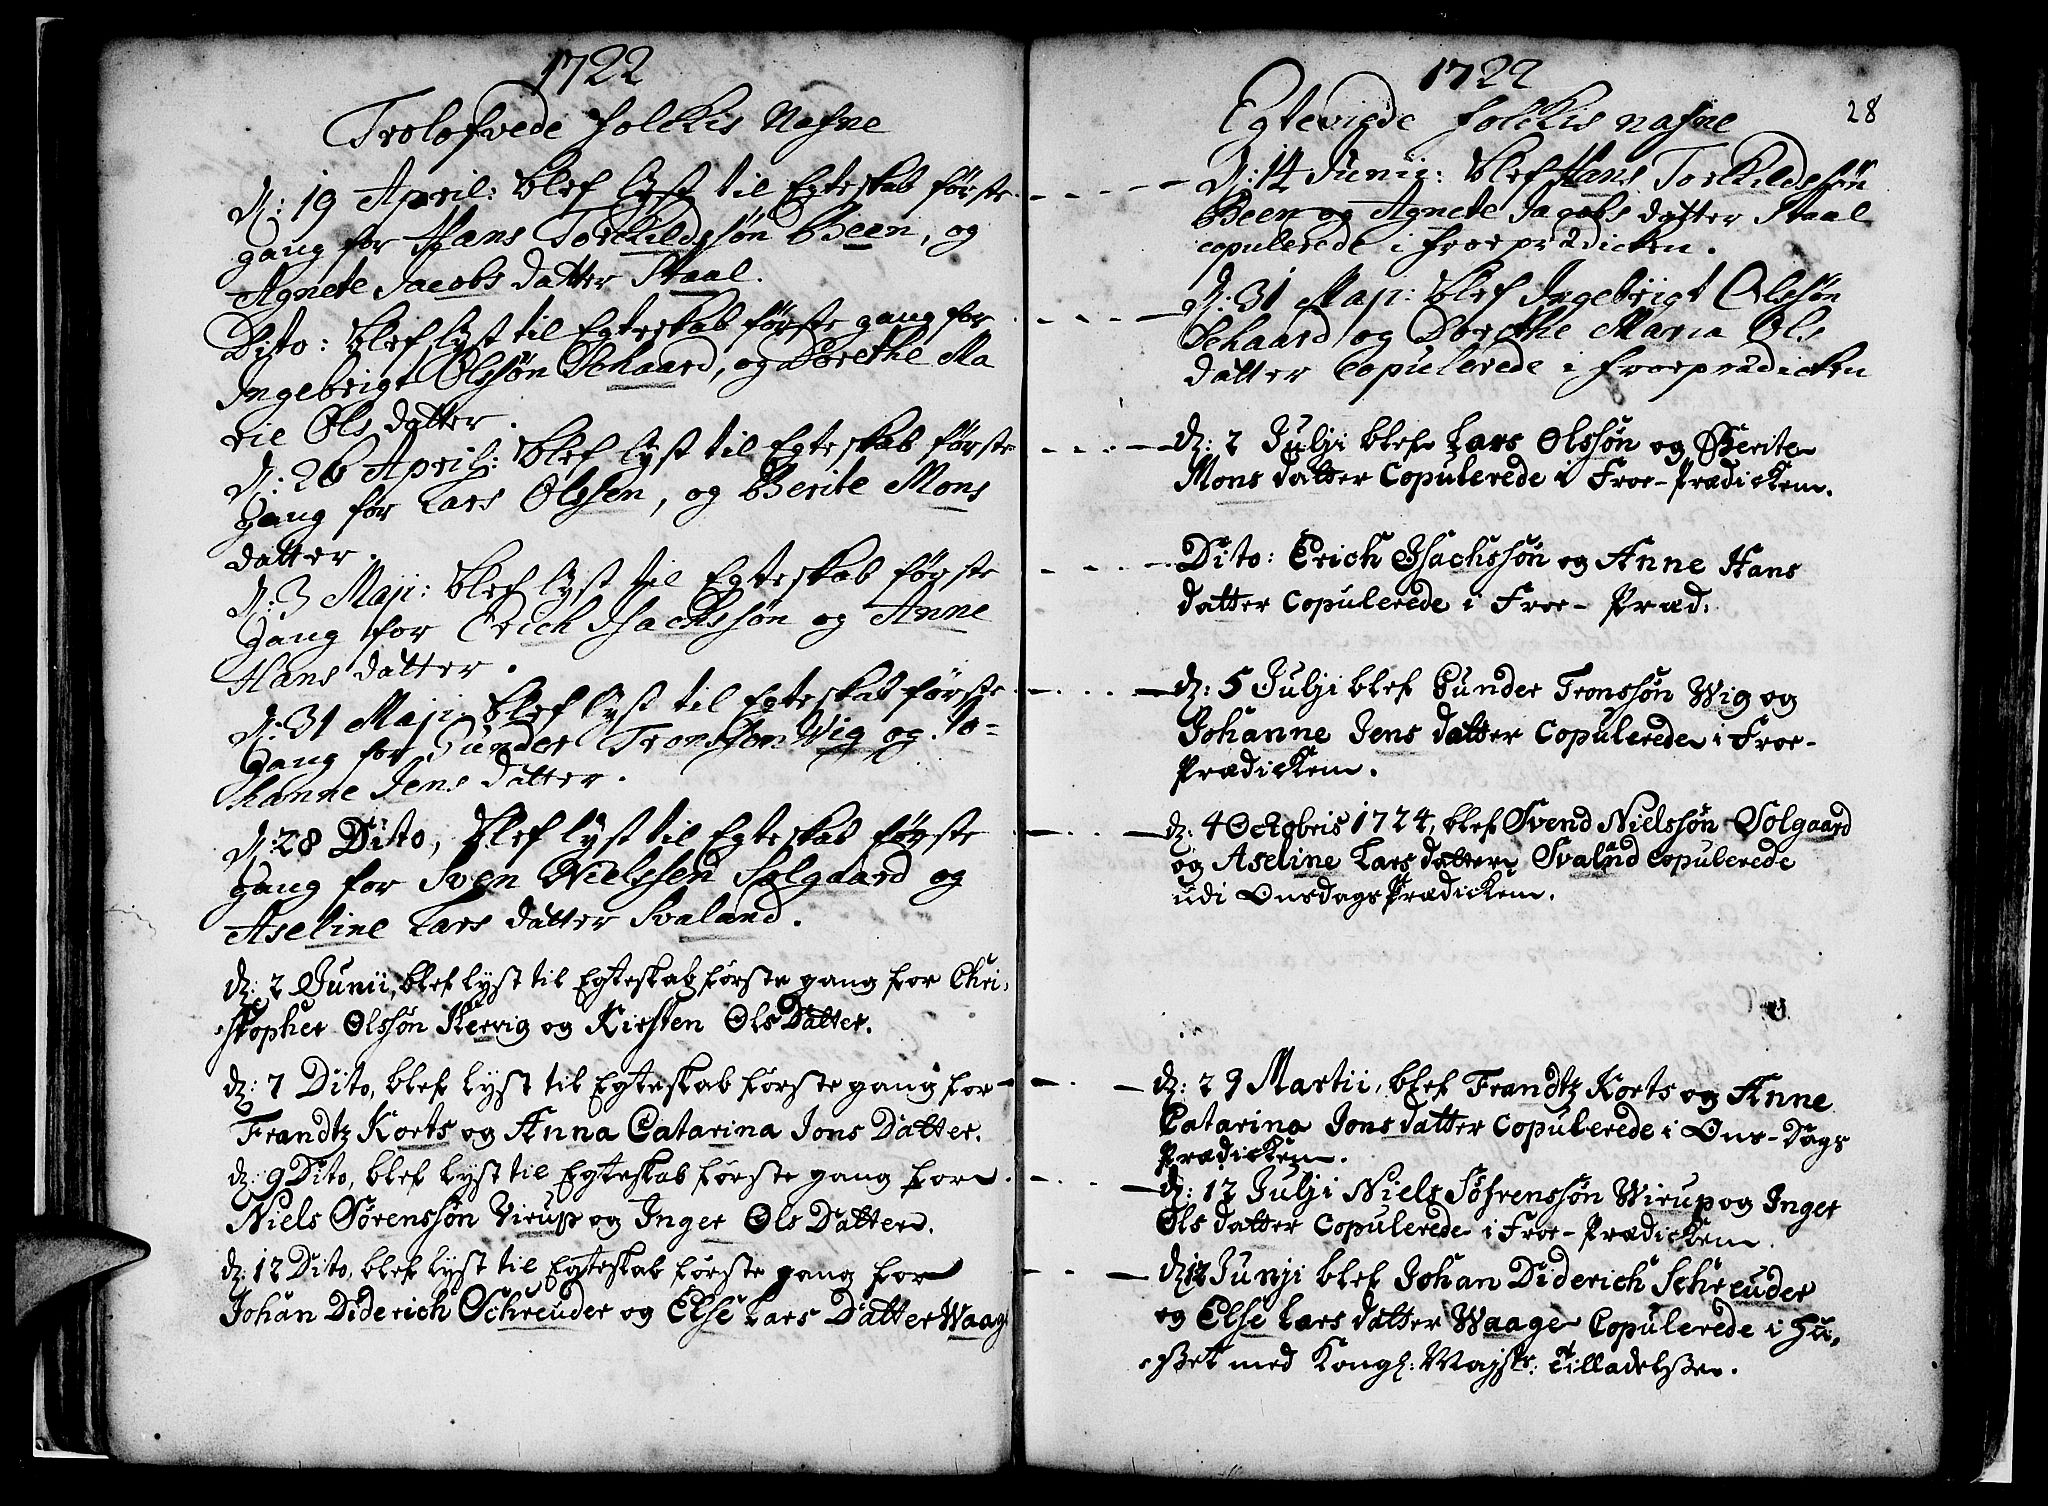 1722
Trolofvede folckis Nafne
d: 19 April: blef lyst til Egteskab første
gang for Hans Torckildssøn Been, og
Agnete Jacobs datter Staal.
Dito: blef lyst til Egteskab første gang for
Ingebrigt Olssøn Schaard, og Dorethe Ma
rie Ols datter.
d: 26 April: blef lyst til Egteskab første
gang for Lars Olssen, og Berite Mons
datter.
d: 3 Maji: blef lyst til Egteskab første
gang for Erich Isachssøn og Anne
Hans datter.
d: 31 Maji blef lyst til Egteskab første
gang for Gunder Tronssen Wig og Jo-
hanne Jens datter.
d: 28 Dito, blef lyst til Egteskab første
gang for Sven Nielssen Solgaard og
Aseline Lars datter Svaland.
d: 2 Junii, blef lyst til Egteskab første gang for Chri,
stopher Olssøn Kervig og Kirsten Ols Datter.
d: 7 Dito, blef lyst til Egteskab første gang for
Frandtz Korts og Anna Catarina Jons Datter.
d: 9 Dito, blef lyst til Egteskab første gang for
Niels Sørenssøn Virup og Inger Ols Datter.
d: 12 Dito, blef lyst til Egteskab første gang for
Johan Diderich Schreuder og Else Lars Datter Waag
1722
28
Egteviede folckis nafne
d: 14 Junii: blef Hans Torckildssøn
Been og Agnete Jagobs datter Staal
copulerede i froeprädicken.
d: 31 May: blef Ingebrigt Olssøn
Schaard og Dorethe Maria Ols
datter Copulerede i froeprädicken
d: 2 Julji blef Lars Olssøn og Berite
Mons datter Copulerede i Froe-Prædicken.
Dito: Erich Isachssøn og Anne Hans
datter Copulerede i Froe- Præd:
d: 5 Julji blef Gunder Tronssøn Wig og
Johanne Jens datter Copulerede i Froe-
Prædicken.
d: 4 Octobris 1724, blef Svend Nielssøn Solgaard
og Aseline Lars datter Svaland Copulerede
udi Onsdags Prædicken.
d: 29 Martii, blef Frandtz Korts og Anne
Catarina Jons datter Copulerede i Ons-Dags
Prædicken.
d: 12 Julji Niels Søfrenssøn Wirup og Inger
Ols datter Copulerede i Froe-Prædicken.
d: 12 Junji blef Johan Diderich Schreuder
og Else Lars datter Waage Copulerede i Hu,
sset med Kongl: Majsts: Tilladelsse.